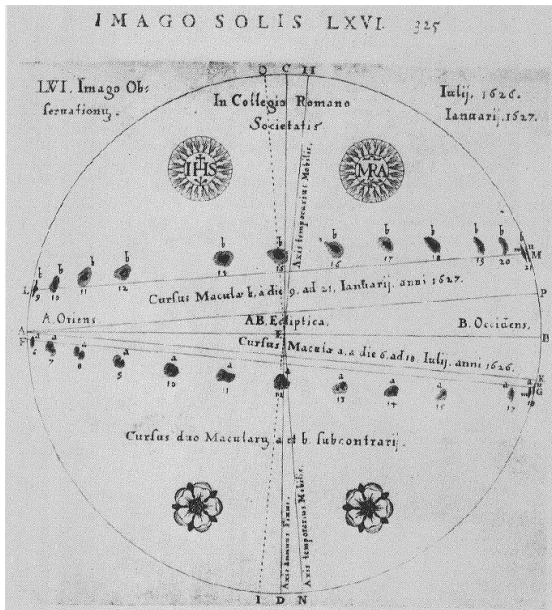 IMAGO SOLIS LXVI. 325
O C H
LVI. Imago Ob-
seruationũ.
In Collegio Romano
Societatis
Iulij. 1626.
Ianuarij. 1627.
IHS
MRA
Axis temporarius Mobilis.
b b b b b b b b b b b
L M
9 10 11 12 14 15 16 17 18 19 20 21
Cursus Maculæ b, à die 9. ad 21. Ianuarij. anni 1627.
P
A. Oriens AB. Ecliptica. B. Occidens,
A E B
F
Cursus Maculæ a. a die 6. ad 18. Iulij. anni 1626.
K
a a a a a a a a a a
G
6 7 8 9 10 11 12 13 14 15 17 18
Cursus duo Macularũ a et b. subcontrarij.
Axis annuus Fixus.
Axis temporarius Mobilis.
I D N